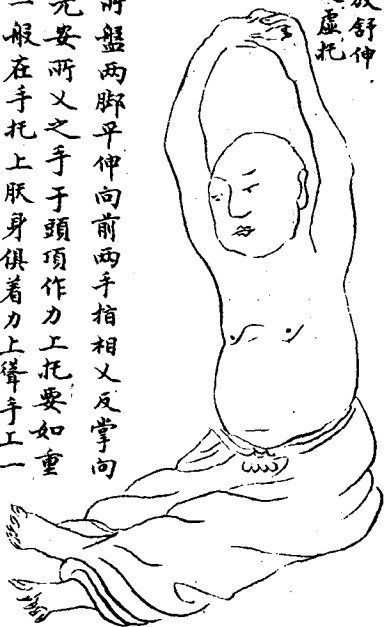 放舒伸
虛托
所盤两脚平伸向前两手指相乂反掌向
先安所乂之手于頭頂作力上托要如重
一般在手托上腰身俱着力上聳手上一